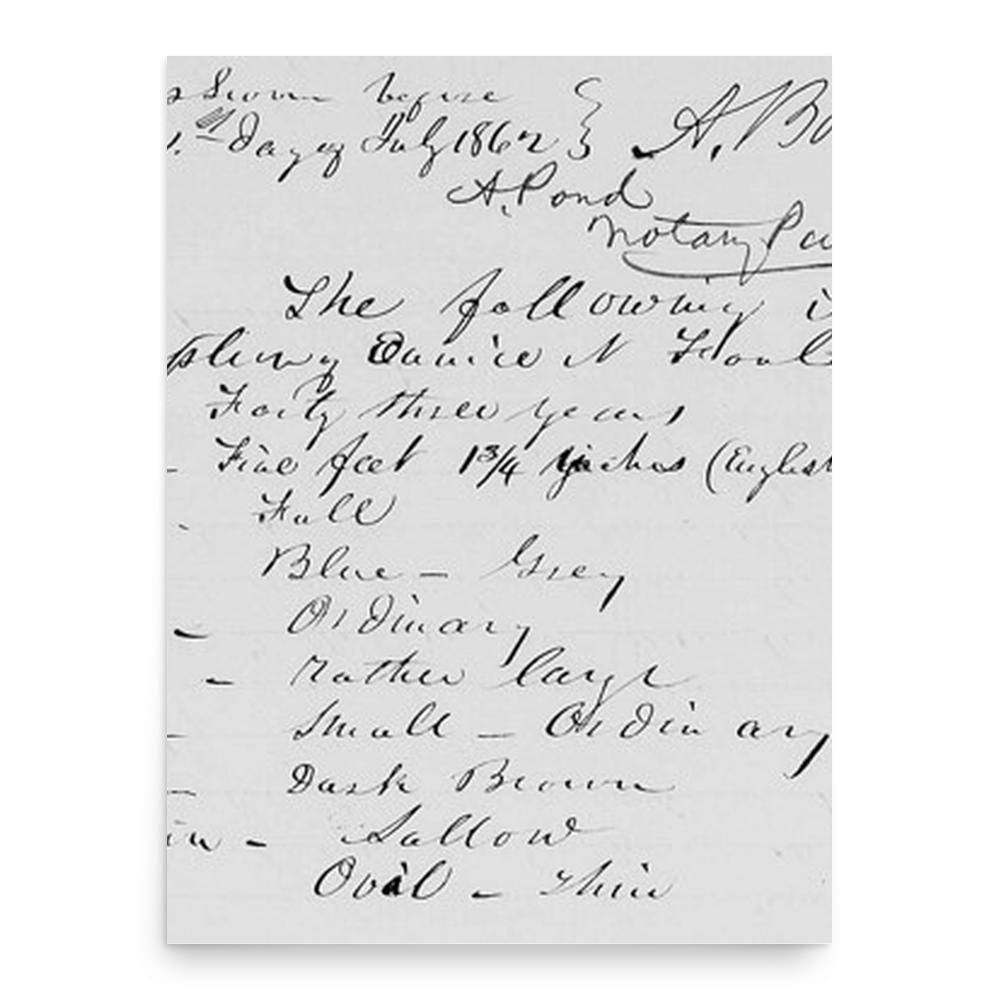 Sworn before
Day of July 1862 } A. Bo
A. Pond
Notary Pu
The following i
Eunice N
Forty three years
Five feet 1 3/4 inches (English
Full
Blue - Grey
Ordinary
- rather large
- Small - Ordinary
Dark Brown
- Sallow
Oval - thin